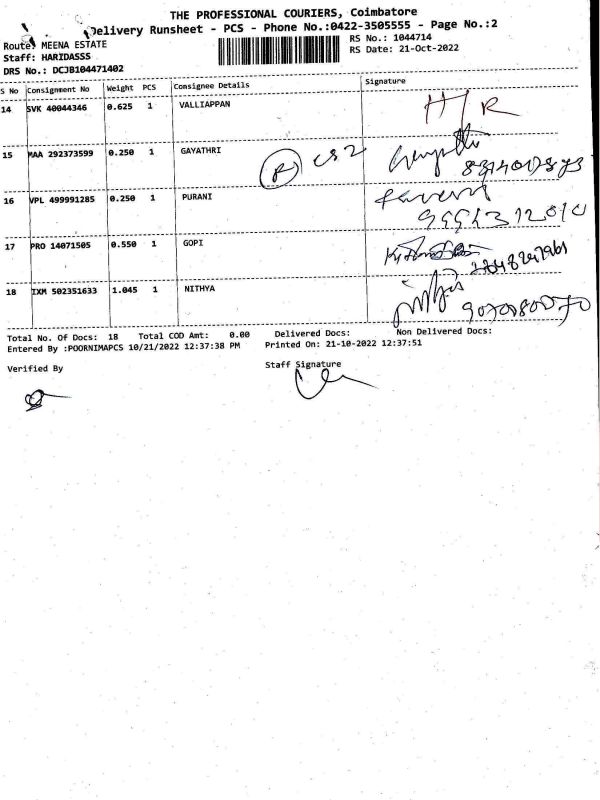 THE PROFESSIONAL COURIERS, Coimbatore
Delivery Runsheet - PCS - Phone No.:0422-3505555 - Page No.:2
Route: MEENA ESTATE
RS No.: 1044714
Staff: HARIDASSS
RS Date: 21-Oct-2022
DRS No.: DCJB104471402
S No Consignment No Weight PCS Consignee Details Signature
14 SVK 40044346 0.625 1 VALLIAPPAN H/R
15 MAA 292373599 0.250 1 GAYATHRI
16 VPL 499991285 0.250 1 PURANI
17 PRO 14071505 0.550 1 GOPI
18 IXM 502351633 1.045 1 NITHYA
Total No. Of Docs: 18 Total COD Amt: 0.00 Delivered Docs: Non Delivered Docs:
Entered By :POORNIMAPCS 10/21/2022 12:37:38 PM Printed On: 21-10-2022 12:37:51
Verified By Staff Signature